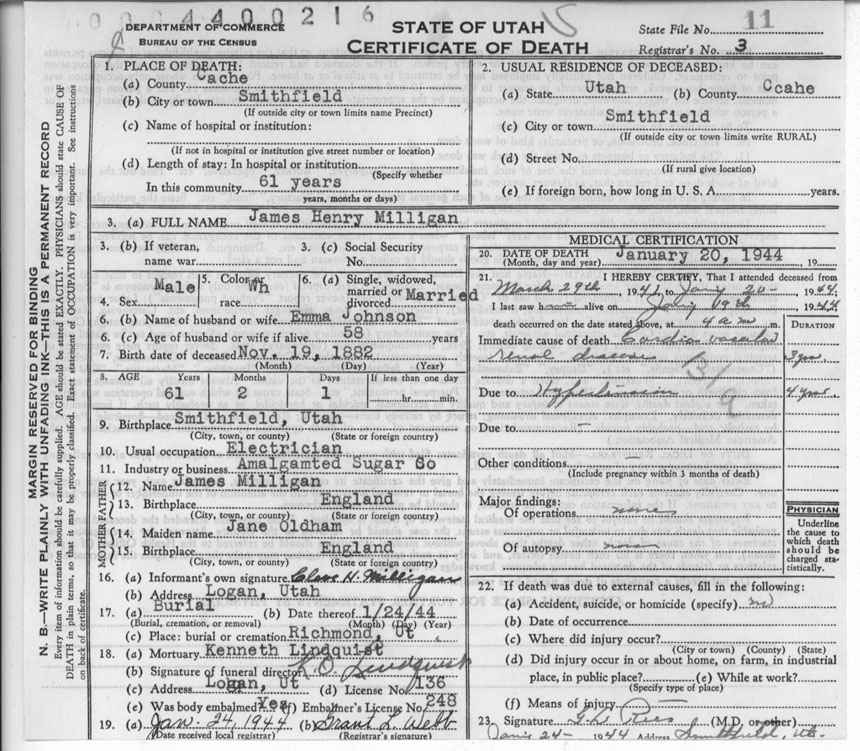 0004400216
DEPARTMENT OF COMMERCE
BUREAU OF THE CENSUS
STATE OF UTAH
CERTIFICATE OF DEATH
State File No. 11
Registrar's No. 3
MARGIN RESERVED FOR BINDING
N. B.—WRITE PLAINLY WITH UNFADING INK—THIS IS A PERMANENT RECORD
Every item of information should be carefully supplied. AGE should be stated EXACTLY. PHYSICIANS should state CAUSE OF
DEATH in plain terms, so that it may be properly classified. Exact statement of OCCUPATION is very important. See instructions
on back of certificate.
1. PLACE OF DEATH:
(a) County Cache
(b) City or town Smithfield
(If outside city or town limits name Precinct)
(c) Name of hospital or institution:
(If not in hospital or institution give street number or location)
(d) Length of stay: In hospital or institution
(Specify whether
In this community 61 years
years, months or days)
2. USUAL RESIDENCE OF DECEASED:
(a) State Utah (b) County Ccahe
(c) City or town Smithfield
(If outside city or town limits write RURAL)
(d) Street No.
(If rural give location)
(e) If foreign born, how long in U. S. A. years.
3. (a) FULL NAME James Henry Milligan
3. (b) If veteran, name war
3. (c) Social Security No.
4. Sex Male
5. Color or race Wh
6. (a) Single, widowed, married or divorced Married
6. (b) Name of husband or wife Emma Johnson
6. (c) Age of husband or wife if alive 58 years
7. Birth date of deceased Nov. 19, 1882
(Month) (Day) (Year)
8. AGE Years Months Days If less than one day
61 2 1 hr. min.
9. Birthplace Smithfield, Utah
(City, town, or county) (State or foreign country)
10. Usual occupation Electrician
11. Industry or business Amalgamted Sugar Co
FATHER
12. Name James Milligan
13. Birthplace England
(City, town, or county) (State or foreign country)
MOTHER
14. Maiden name Jane Oldham
15. Birthplace England
(City, town, or county) (State or foreign country)
16. (a) Informant's own signature H. Milligan
(b) Address Logan, Utah
17. (a) Burial (b) Date thereof 1/24/44
(Burial, cremation, or removal) (Month) (Day) (Year)
(c) Place: burial or cremation Richmond, Ut
18. (a) Mortuary Kenneth Lindquist
(b) Signature of funeral director K O Lindquist
(c) Address Logan, Ut (d) License No. 136
(e) Was body embalmed? Yes (f) Embalmer's License No. 248
19. (a) Jan. 24, 1944 (b) Grant L. Webb
(Date received local registrar) (Registrar's signature)
MEDICAL CERTIFICATION
20. DATE OF DEATH January 20, 1944
(Month, day and year) 19
21. I HEREBY CERTIFY, That I attended deceased from
March 29th, 1941 to Jany 20-, 1944
I last saw h alive on Jany 19th 1944
death occurred on the date stated above, at 4 a m m.
DURATION
Immediate cause of death Cardio vascular
renal disease 3 yrs
Due to Hypertension 4 years
Due to —
Other conditions —
(Include pregnancy within 3 months of death)
Major findings:
Of operations none
Of autopsy none
PHYSICIAN
Underline
the cause to
which death
should be
charged sta-
tistically.
22. If death was due to external causes, fill in the following:
(a) Accident, suicide, or homicide (specify) no
(b) Date of occurrence
(c) Where did injury occur?
(City or town) (County) (State)
(d) Did injury occur in or about home, on farm, in industrial
place, in public place? (e) While at work?
(Specify type of place)
(f) Means of injury
23. Signature G. L. Rees (M.D. or other)
24- 1944 Address Smithfield, Ut.